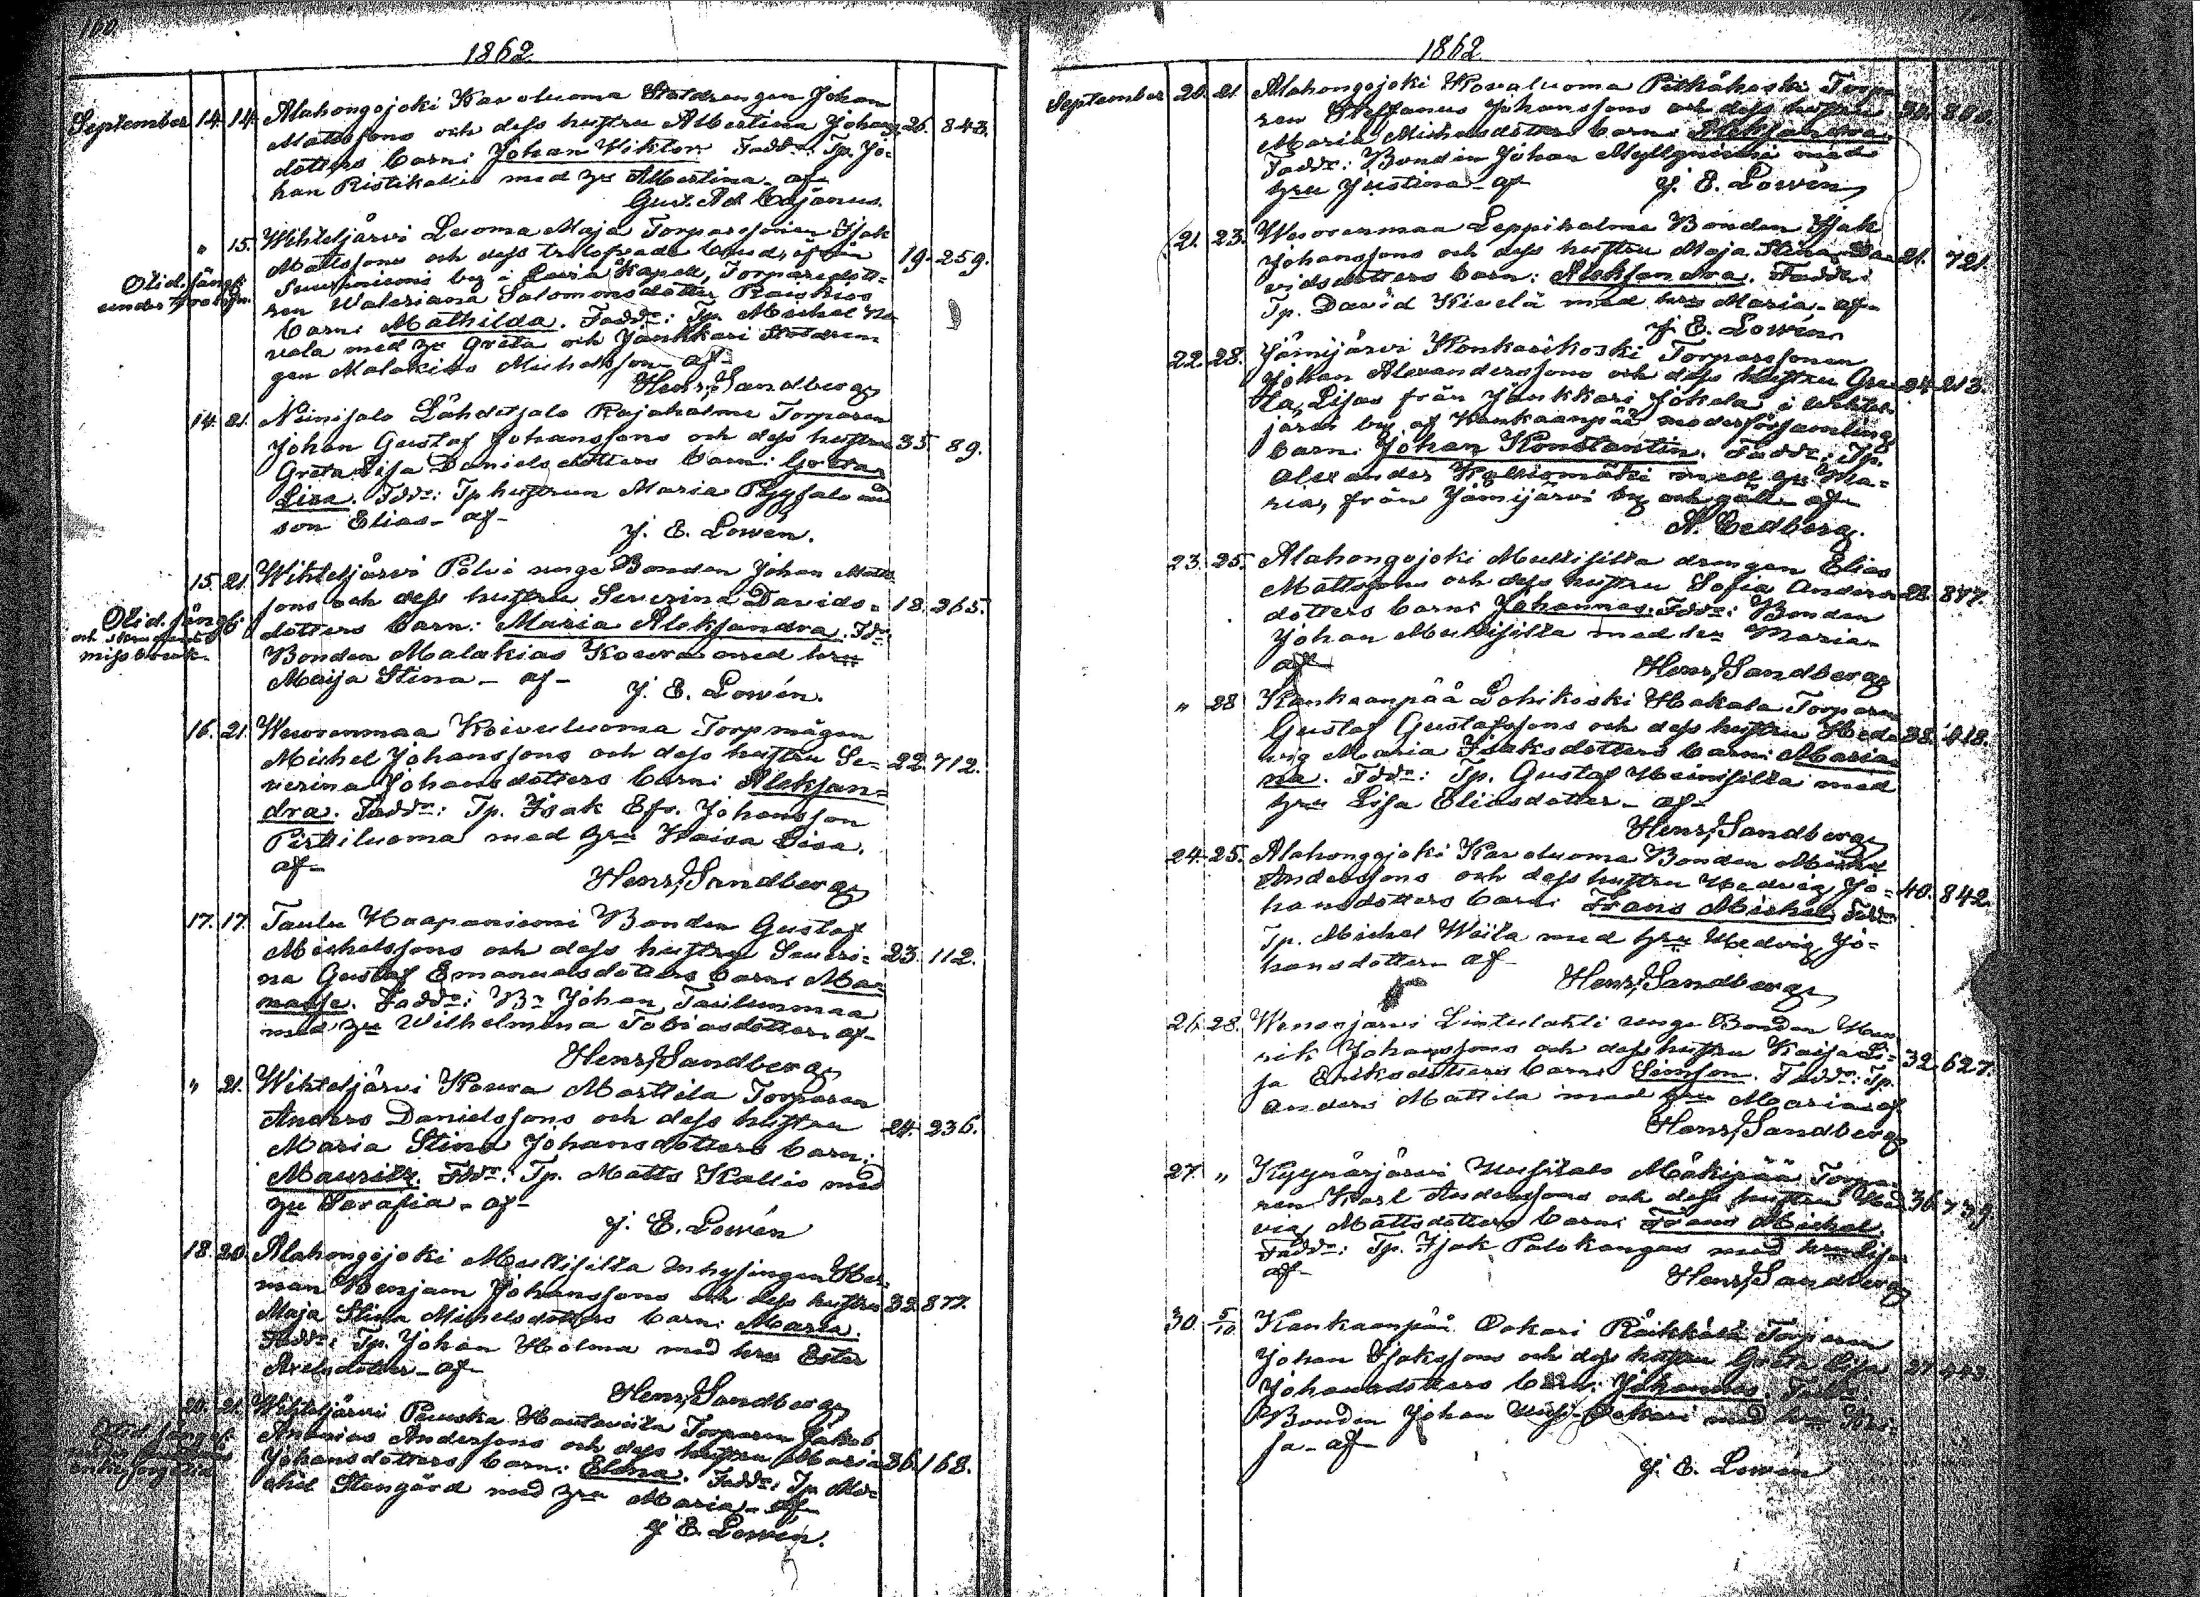 160
1862
September 14. 14. Alahongojoki Karvoluoma Statdrengen Johan
Mattssons och dess hustru Albertina Johans- 26. 843.
dotters barn: Johan Wiktor. Faddr: Tp. Jo-
han Ristikallio med hu Albertina - af
Gust. Ad. Cajanus.
" 15. Wihteljärvi Luoma Maja Torparesonen Isak
Mattssons och dess trolofvade 19. 259.
Suurniemi by i Lavia Kapell, Torparedott-
Oäkta
ren Waleriana Salomonsdotter Raiskios
barn: Mathilda. Faddr: Tp. Michel
vala med hu Greta och Jankkari Statdren-
gen Malakias Michelsson - af
Henr. Sandberg
14. 21. Niinisalo Lähdesjalo Rajaholme Torparen
Johan Gustaf Johanssons och dess hustru 35. 89.
Greta Lisa Danielsdotters barn: Greta
Lisa. Fddr: Tp hustrun Maria Pyysalo med
son Elias - af -
J. E. Lowén.
15. 21. Wihteljärvi Palvi unge Bonden Johan Matts-
sons och dess hustru Severina Davids- 18. 265.
dotters barn: Maria Aleksandra. Fdr:
Bonden Malakias Koura med hru
Maija Stina - af -
J. E. Lowén.
16. 21. Wenesnmaa Koivuluoma Torpmågen
Michel Johanssons och dess hustru Se- 22. 712.
verina Johansdotters barn: Aleksan-
dra. Faddr: Tp. Isak Efr. Johansson
Pirttiluoma med hru Kaisa Lisa.
af
Henr. Sandberg
17. 17. Taulu Haapaniemi Bonden Gustaf
Michelssons och dess hustru Severi- 23. 112.
na Gustaf Emanuelsdotters barn: Ma-
nasse. Faddr: Bn Johan Tailunmaa
med hu Wilhelmina Tobiasdotter - af -
Henr. Sandberg
" 21. Wihteljärvi Koura Marttila Torparen
Anders Danielssons och dess hustru 24. 236.
Maria Stina Johansdotters barn:
Mauritz. Fddr: Tp. Matts Kallio med
hu Serafia - af -
J. E. Lowén
18. 20. Alahongojoki Mustisilta Inhysingen Her-
man Benjam Johanssons och dess hustru 32. 877.
Maja Stina Michelsdotters barn: Maria.
Faddr: Tp. Johan Holma med hru Ester
Axelsdotter - af
Henr. Sandberg
20. 21. Wihteljärvi Puuska Hautaviita Torparen Jakob
Ananias Anderssons och dess hustru Maria 36. 168.
Johansdotters barn: Elena. Faddr: Tp. Mi-
chel Stengård med hru Maria - af
J. E. Lowén.
1862
September 20. 21. Alahongojoki Kovaluoma Pitkäkoski Torpa-
ren Steffanus Johanssons och dess hustru
Maria Michelsdotters barn: Aleksandra.
Faddr: Bonden Johan Myllyniemi med
hru Justina - af
J. E. Lowén
21. 23. Leppiholme Bonden Isak
Johanssons och dess hustru Maja Stina Da- 21. 721.
vidsdotters barn: Aleksandra. Faddr:
Tp. David Kivelä med hru Maria - af -
J. E. Lowén.
22. 28. Jämijärvi Honkasikoski Torparesonen
Johan Alexanderssons och dess hustru Gre- 24. 213.
ta Lisas från Jankkari Jokela i Wihtel-
järvi by af Kankaanpää moderförsamling
barn: Johan Konstantin. Faddr: Tp.
Alexander Kalliomäki med hu Ma-
ria, från Jämijärvi by och gäll - af
A. Cedberg.
23. 25. Alahongojoki Mustisilta drengen Elias
Mattssons och dess hustru Sofia Anders- 28. 877.
dotters barn: Johannes. Fddr: Bonden
Johan Mustisilta med hu Maria -
af
Henr. Sandberg
" 28 Kankaanpää Lohikoski Hakala Torparen
Gustaf Gustafssons och dess hustru Hed- 38. 418.
vig Maria Isaksdotters barn: Maria-
na. Fddr: Tp. Gustaf Heinisilta med
hru Lisa Eliasdotter - af -
Henr. Sandberg
24. 25. Alahongojoki Karvoluoma Bonden Michel
Anderssons och dess hustru Hedvig Jo- 40. 842.
hansdotters barn: Frans Michel. Fddr
Tp. Michel Wiita med hru Hedvig Jo-
hansdotter - af
Henr. Sandberg
26. 28. Wenesjärvi Lintulahti unge Bonden Hen-
rik Johanssons och dess hustru Kaisa Li- 32. 627.
sa Eriksdotters barn: Simson. Faddr: Tp.
Anders Mattila med hru Maria - af
Henr. Sandberg
27. " Kyynärjärvi Uusitalo Mäkipää Torpa-
ren Karl Anderssons och dess hustru Hed- 36. 739.
vig Mattsdotters barn: Frans Michel.
Faddr: Tp. Isak Palokangas med hru Lisa
af -
Henr. Sandberg
30. 5/10 Kankaanpää Oskari Räikkälä Torparen
Johan Isakssons och dess hustru Greta Lisa
Johansdotters barn: Johannes. Faddr
Bonden Johan med hru
sa - af
J. E. Lowén